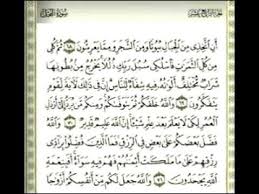 الجزء الرابع عشر سورة النحل
أَنِ ٱتَّخِذِى مِنَ ٱلْجِبَالِ بُيُوتًا وَمِنَ ٱلشَّجَرِ وَمِمَّا يَعْرِشُونَ ٦٨ ثُمَّ كُلِى
مِن كُلِّ ٱلثَّمَرَٰتِ فَٱسْلُكِى سُبُلَ رَبِّكِ ذُلُلًا يَخْرُجُ مِنۢ بُطُونِهَا
شَرَابٌ مُّخْتَلِفٌ أَلْوَٰنُهُۥ فِيهِ شِفَآءٌ لِّلنَّاسِ إِنَّ فِى ذَٰلِكَ لَءَايَةً لِّقَوْمٍ
يَتَفَكَّرُونَ ٦٩ وَٱللَّهُ خَلَقَكُمْ ثُمَّ يَتَوَفَّىٰكُمْ وَمِنكُم مَّن يُرَدُّ إِلَىٰٓ أَرْذَلِ
ٱلْعُمُرِ لِكَىْ لَا يَعْلَمَ بَعْدَ عِلْمٍ شَيْـًٔا إِنَّ ٱللَّهَ عَلِيمٌ قَدِيرٌ ٧٠ وَٱللَّهُ
فَضَّلَ بَعْضَكُمْ عَلَىٰ بَعْضٍ فِى ٱلرِّزْقِ فَمَا ٱلَّذِينَ فُضِّلُوا۟ بِرَآدِّى
رِزْقِهِمْ عَلَىٰ مَا مَلَكَتْ أَيْمَٰنُهُمْ فَهُمْ فِيهِ سَوَآءٌ أَفَبِنِعْمَةِ
ٱللَّهِ يَجْحَدُونَ ٧١ وَٱللَّهُ جَعَلَ لَكُم مِّنْ أَنفُسِكُمْ أَزْوَٰجًا